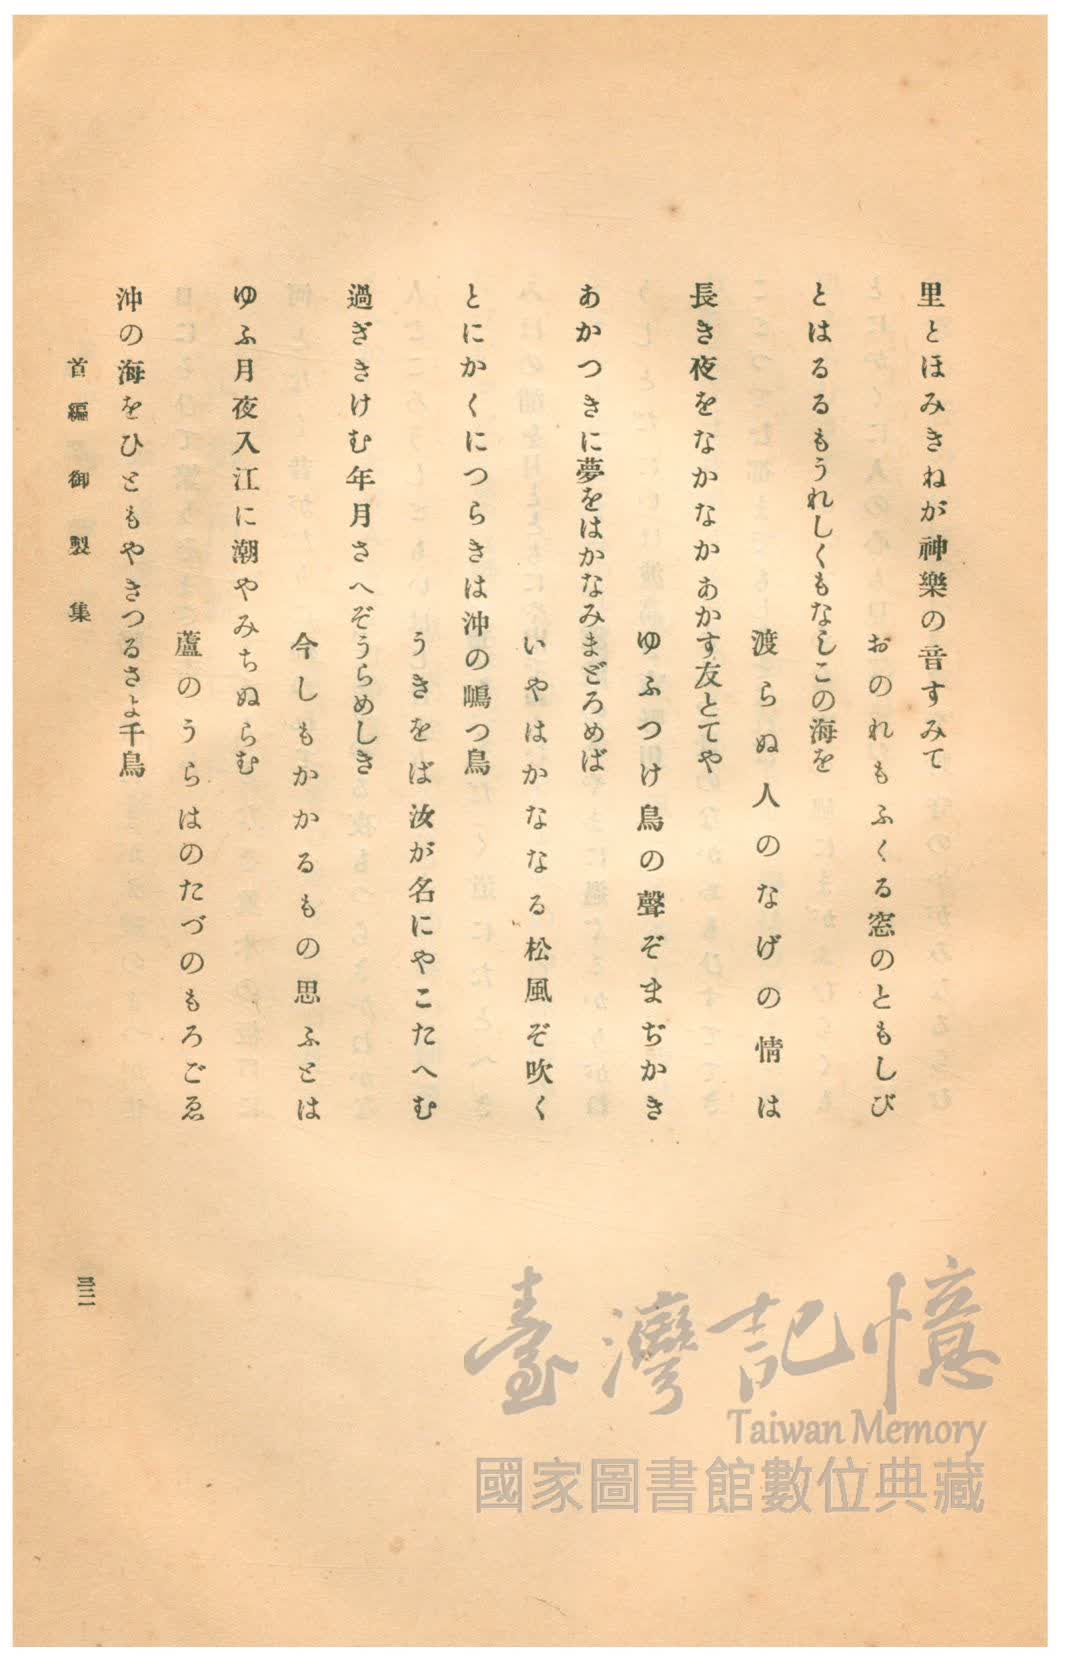 里とほみきねが神樂の音すみて
おのれもふくる窓のともしび
とはるるもうれしくもなしこの海を
渡らぬ人のなげの情は
長き夜をなかなかあかす友とてや
ゆふつけ鳥の聲ぞまぢかき
あかつきに夢をはかなみまどろめば
いやはかななる松風ぞ吹く
とにかくにつらきは沖の嶋つ鳥
うきをば汝が名にやこたへむ
過ぎきけむ年月さへぞうらめしき
今しもかかるもの思ふとは
ゆふ月夜入江に潮やみちぬらむ
蘆のうらはのたづのもろごゑ
沖の海をひともやきつるさよ千鳥
首編 御製集
三三
臺灣記憶
Taiwan Memory
國家圖書館數位典藏